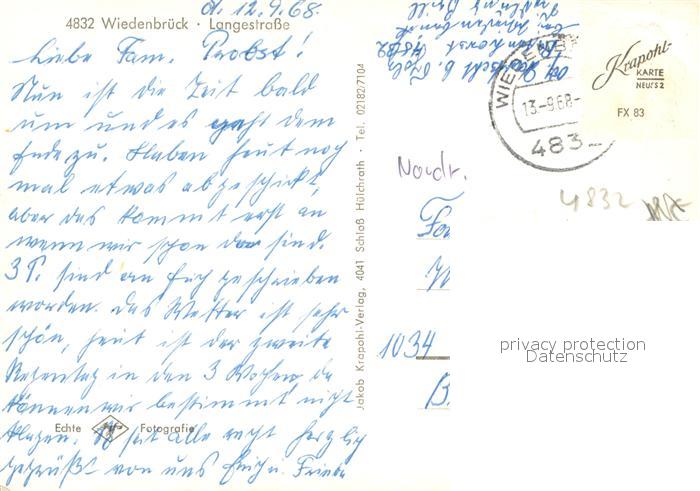 d. 12.9.68.
4832 Wiedenbrück · Langestraße
Liebe Fam. Probst!
Nun ist die Zeit bald
um und es geht dem
Ende zu. Haben heut noch
mal etwas abgeschickt,
aber das kommt erst an
wenn wir schon da sind.
3 P. sind an Euch geschrieben
worden. Das Wetter ist sehr
schön, heut ist der zweite
Regentag in den 3 Wochen, da
können wir bestimmt nicht
klagen. seit alle recht herzlich
gegrüßt von uns Erich u. Frieda
Echte Fotografie
Jakob Krapohl-Verlag, 4041 Schloß Hülchrath · Tel. 02182/7104
WIEDENBR
13.-9.68-
483
Krapohl-
KARTE
NEUSS 2
FX 83
Nordr.
4832
1034
privacy protection
Datenschutz